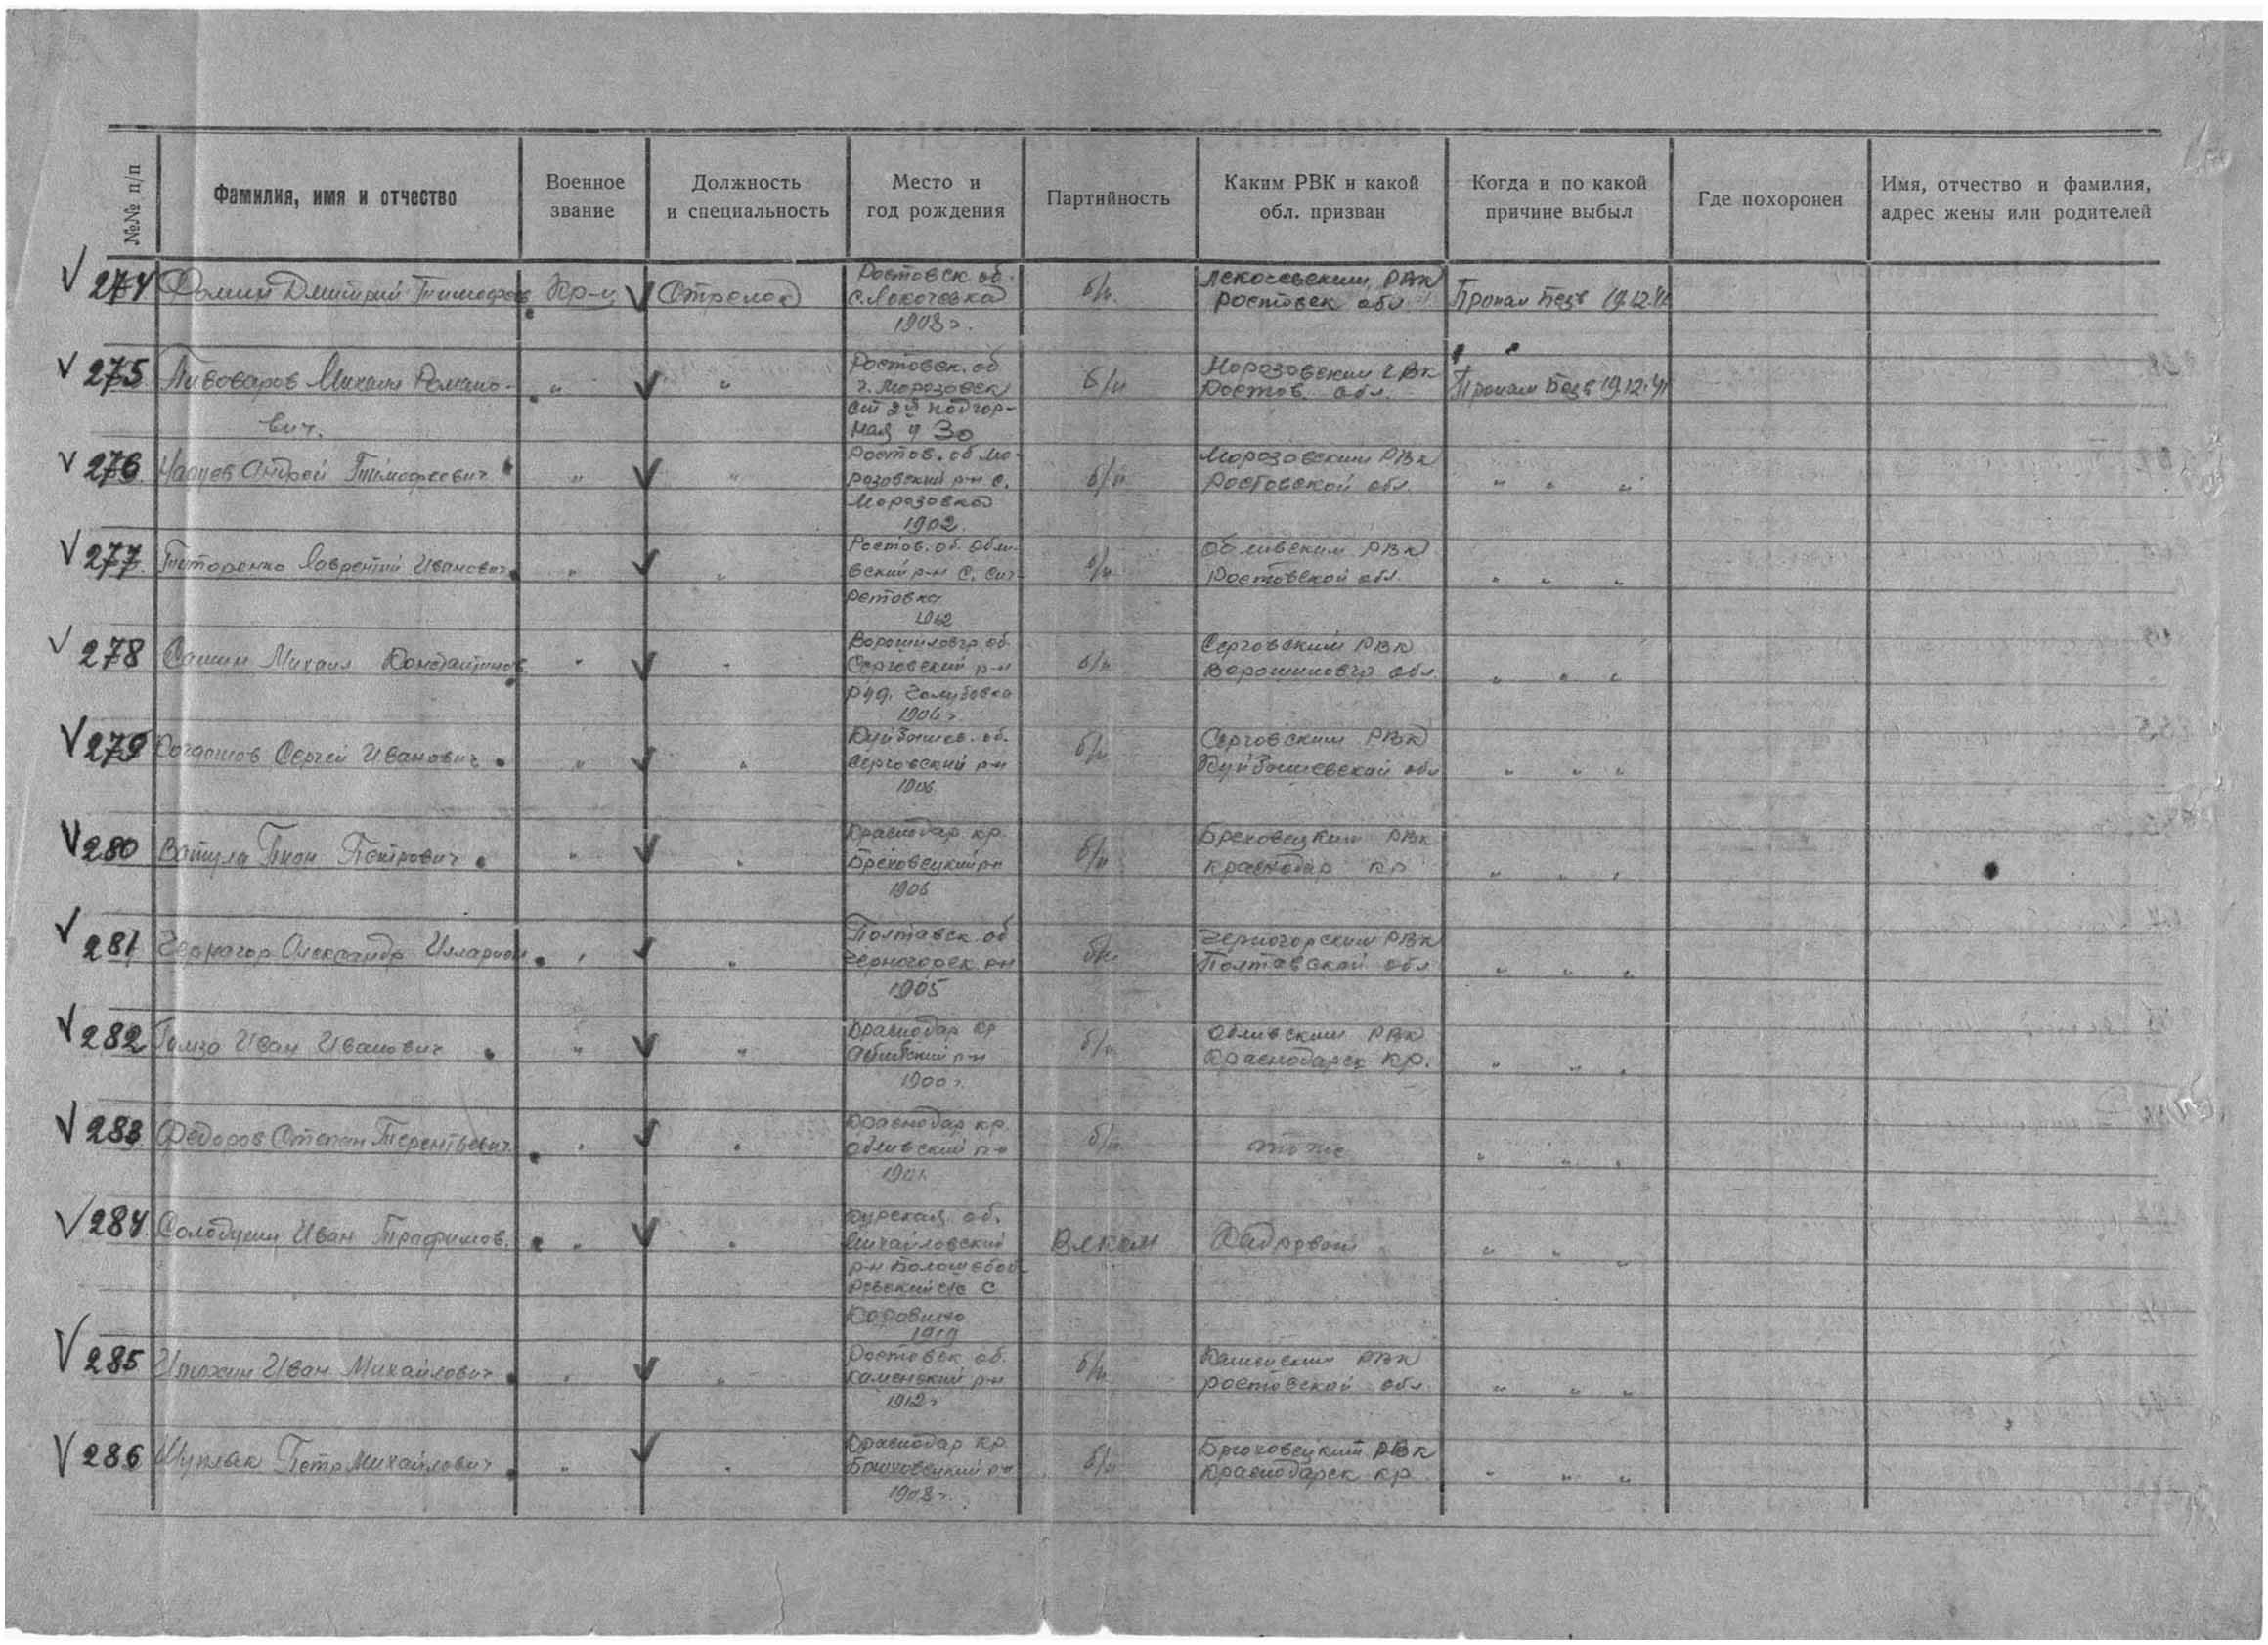 №№ п/п
Фамилия, имя и отчество
Военное
звание
Должность
и специальность
Место и
год рождения
Партийность
Каким РВК и какой
обл. призван
Когда и по какой
причине выбыл
Где похоронен
Имя, отчество и фамилия,
адрес жены или родителей
274 Фомин Дмитрий Тимофеев Кр-ц Стрелок
Ростовск об.
1908 г.
б/п.
РВК
Ростовск обл
Пропал Безв 19.12.41
275 Пивоваров Михаил Романо-
вич.
" "
Ростовск. об
г. Морозовск
ст 2й подгор-
ная 4 30
б/п
Морозовским РВК
Ростов. обл.
Пропал Безв 19.12.41
276 Андрей Тимофеевич " "
Ростов. об Мо-
розовский р-н с.
Морозовка
1902.
б/п
Морозовским РВК
Ростовской обл.
" " "
277 Титоренко Лаврентий Иванович " "
Ростов. об. Обли-
вский р-н с.
1902
б/п
Обливским РВК
Ростовской обл.
" " "
278 Сашин Михаил Константинов " "
Ворошиловгр об.
Серговский р-н
руд. Голубовка
1906 г
б/п
Серговским РВК
Ворошиловгр обл.
" " "
279 Сергей Иванович " "
Куйбышев. об.
Серговский р-н
1906
б/п
Серговским РВК
Куйбышевской обл
" " "
280 Ватула Тихон Петрович " "
Краснодар кр.
Бреховецкий р-н
1906
б/п
Бреховецким РВК
Краснодар кр
" " "
281 Чернагор Александр Илларион " "
Полтавск об
Черногорск р-н
1905
б/п
Черногорским РВК
Полтавской обл
" " "
282 Гамза Иван Иванович " "
Краснодар кр
р-н
1900 г.
б/п
Обливским РВК
Краснодарск кр.
" " "
283 Федоров Степан Терентьевич " "
Краснодар кр.
Обливский р-н
1901
б/п
то же
" " "
284 Солодухин Иван Трафимов. " "
Курская об.
Михайловский
р-н
с
Коровино
1919
Влксм
Кадровый
" " "
285 Иван Михайлович " "
Ростовск об.
Каменский р-н
1912 г
б/п
Каменским РВК
Ростовской обл.
" " "
286 Шупляк Петр Михайлович " "
Краснодар кр
Брюховецкий р-н
1908 г.
б/п
Брюховецкий РВК
Краснодарск кр
" " "